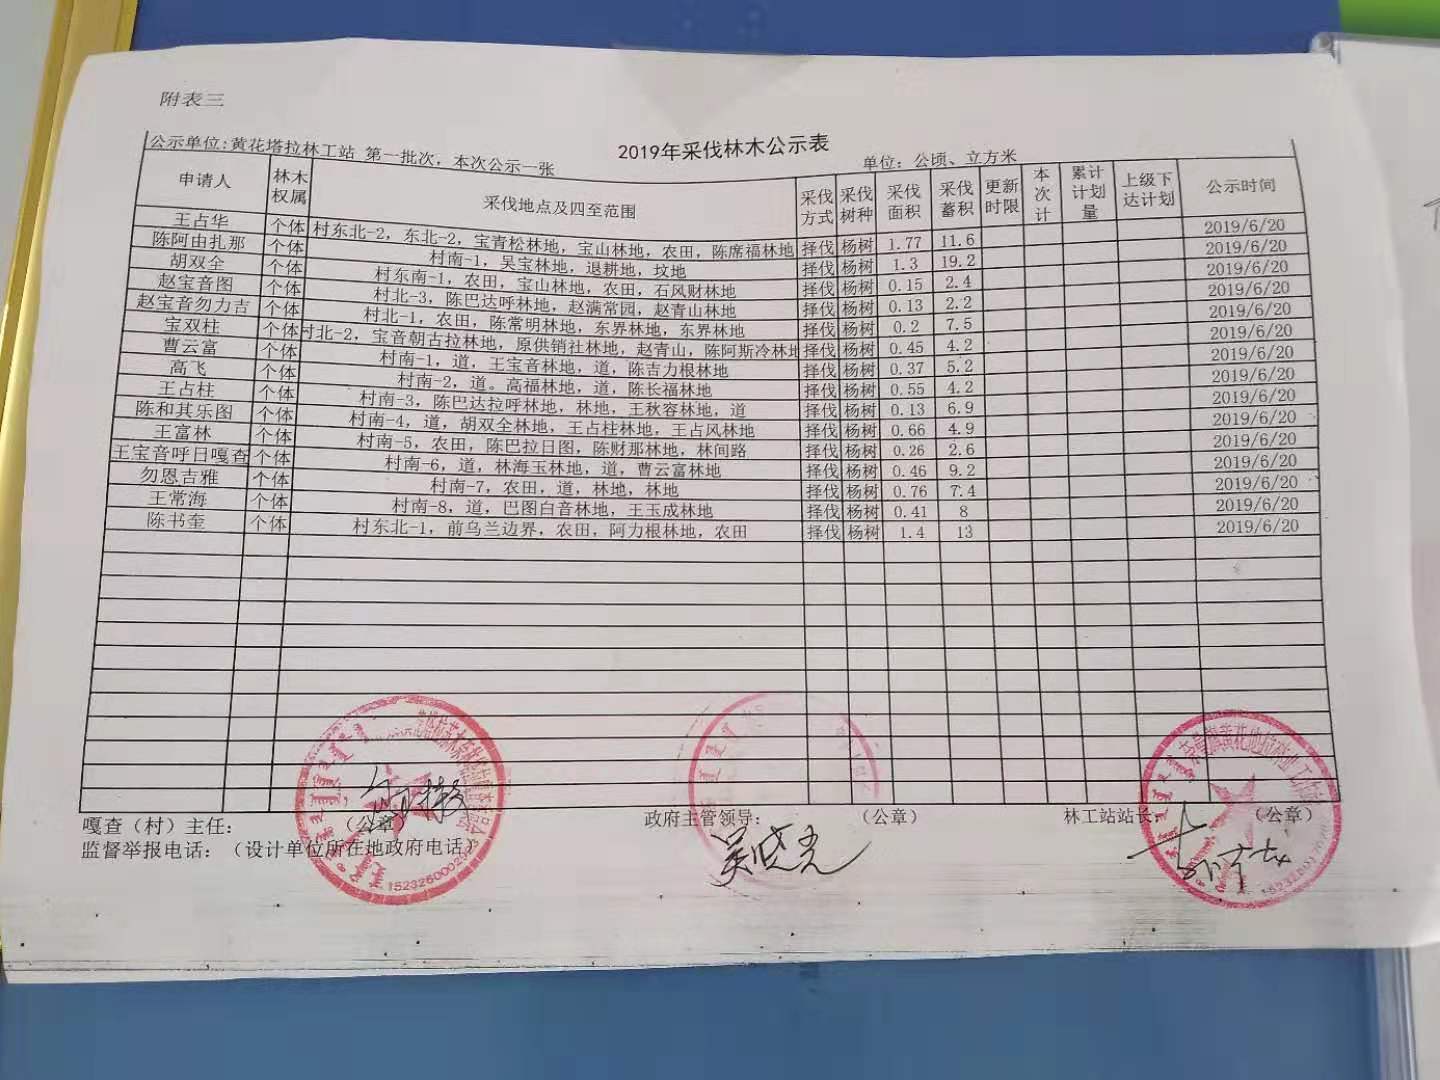 附表三
2019年采伐林木公示表
公示单位:黄花塔拉林工站 第一批次，本次公示一张 单位：公顷、立方米
申请人 林木权属 采伐地点及四至范围 采伐方式 采伐树种 采伐面积 采伐蓄积 更新时限 本次计 累计计划量 上级下达计划 公示时间
王占华 个体 村东北-2，东北-2，宝青松林地，宝山林地，农田，陈席福林地 择伐 杨树 1.77 11.6 2019/6/20
陈阿由扎那 个体 村南-1，吴宝林地，退耕地，坟地 择伐 杨树 1.3 19.2 2019/6/20
胡双全 个体 村东南-1，农田，宝山林地，农田，石风财林地 择伐 杨树 0.15 2.4 2019/6/20
赵宝音图 个体 村北-3，陈巴达呼林地，赵满常园，赵青山林地 择伐 杨树 0.13 2.2 2019/6/20
赵宝音勿力吉 个体 村北-1，农田，陈常明林地，东界林地，东界林地 择伐 杨树 0.2 7.5 2019/6/20
宝双柱 个体 村北-2，宝音朝古拉林地，原供销社林地，赵青山，陈阿斯冷林地 择伐 杨树 0.45 4.2 2019/6/20
曹云富 个体 村南-1，道，王宝音林地，道，陈吉力根林地 择伐 杨树 0.37 5.2 2019/6/20
高飞 个体 村南-2，道。高福林地，道，陈长福林地 择伐 杨树 0.55 4.2 2019/6/20
王占柱 个体 村南-3，陈巴达拉呼林地，林地，王秋容林地，道 择伐 杨树 0.13 6.9 2019/6/20
陈和其乐图 个体 村南-4，道，胡双全林地，王占柱林地，王占风林地 择伐 杨树 0.66 4.9 2019/6/20
王富林 个体 村南-5，农田，陈巴拉日图，陈财那林地，林间路 择伐 杨树 0.26 2.6 2019/6/20
王宝音呼日嘎查 个体 村南-6，道，林海玉林地，道，曹云富林地 择伐 杨树 0.46 9.2 2019/6/20
勿恩吉雅 个体 村南-7，农田，道，林地，林地 择伐 杨树 0.76 7.4 2019/6/20
王常海 个体 村南-8，道，巴图白音林地，王玉成林地 择伐 杨树 0.41 8 2019/6/20
陈书奎 个体 村东北-1，前乌兰边界，农田，阿力根林地，农田 择伐 杨树 1.4 13 2019/6/20
嘎查（村）主任： （公章） 政府主管领导： 吴晓光 （公章） 林工站站长： （公章）
监督举报电话：（设计单位所在地政府电话）